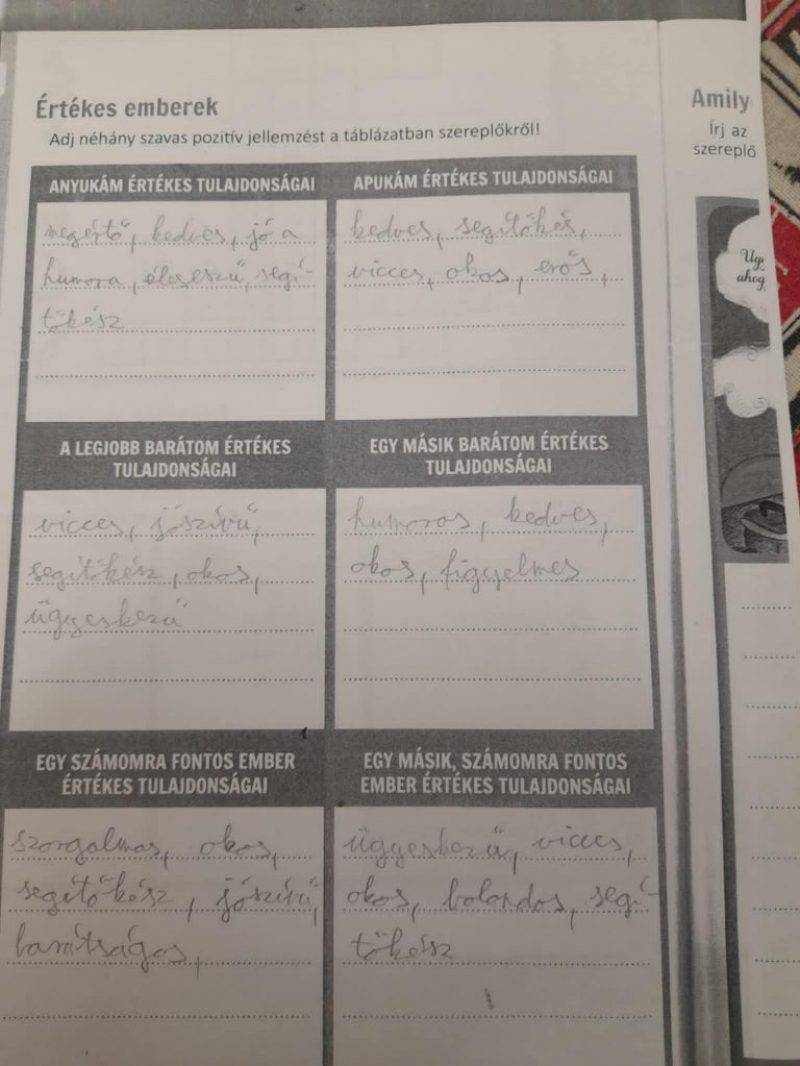 Értékes emberek
Adj néhány szavas pozitív jellemzést a táblázatban szereplőkről!
ANYUKÁM ÉRTÉKES TULAJDONSÁGAI
megértő, kedves, jó a
humora, éleseszű, segí-
tőkész
APUKÁM ÉRTÉKES TULAJDONSÁGAI
kedves, segítőkés,
vicces, okos, erős,
A LEGJOBB BARÁTOM ÉRTÉKES
TULAJDONSÁGAI
vicces, jószívű,
segítőkész, okos,
ügyeskezű
EGY MÁSIK BARÁTOM ÉRTÉKES
TULAJDONSÁGAI
humoros, kedves,
okos, figyelmes
EGY SZÁMOMRA FONTOS EMBER
ÉRTÉKES TULAJDONSÁGAI
szorgalmas, okos,
segítőkész, jószívű,
barátságos,
EGY MÁSIK, SZÁMOMRA FONTOS
EMBER ÉRTÉKES TULAJDONSÁGAI
ügyeskezű, vicces,
okos, bolondos, segí-
tőkész
Amily
Írj az
szereplő
Úgy
ahog